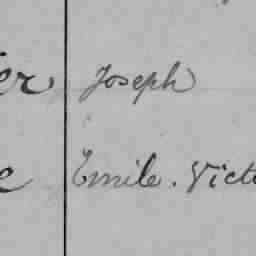 er Joseph
e Emile. Vict